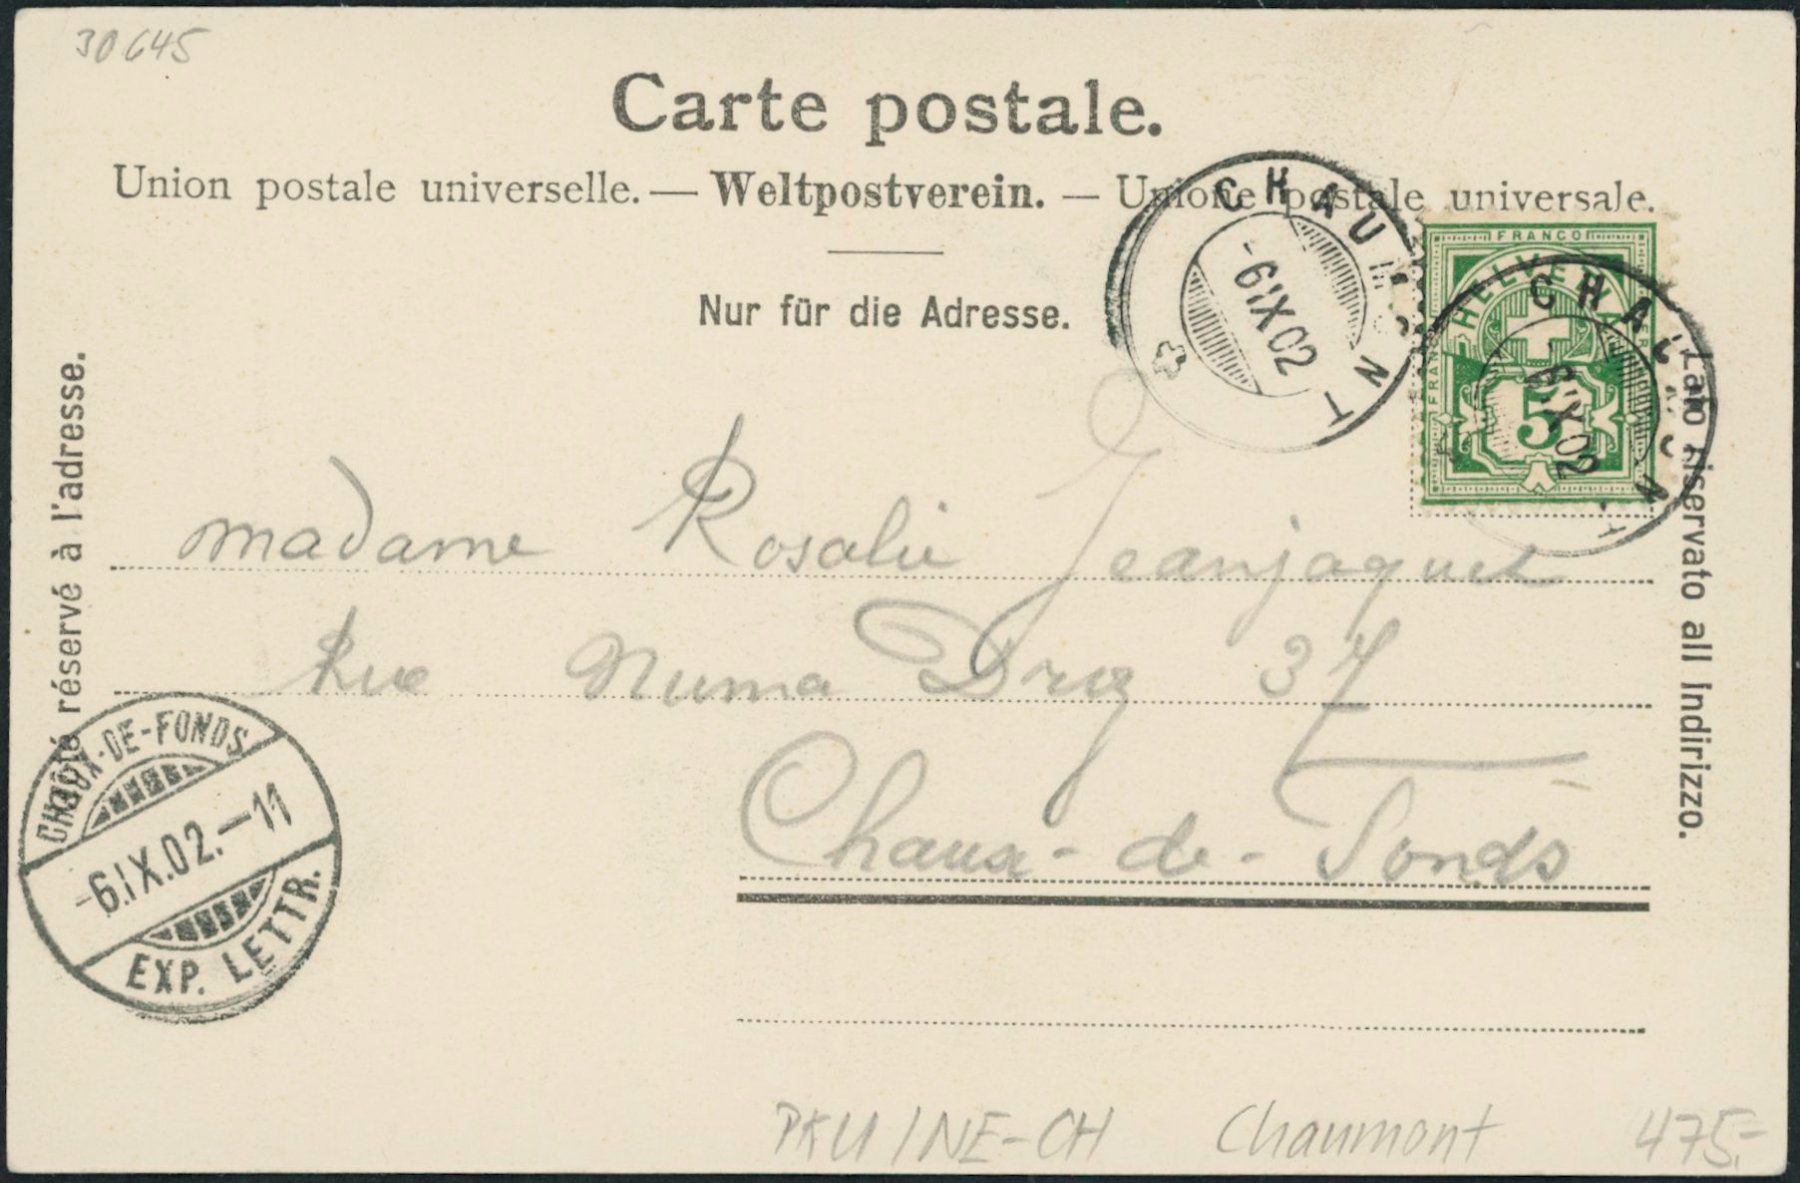 30645
Carte postale.
Union postale universelle. — Weltpostverein. — Unione postale universale.
Nur für die Adresse.
CHAUMONT
-6 IX 02
FRANCO
HELVETIA
5
CHAUMONT
-6 IX 02
Côté réservé à l'adresse.
Lato riservato all Indirizzo.
madame Rosalie Jeanjaquet
Rue Numa Droz 37
Chaux-de-Fonds
CHAUX-DE-FONDS
-6.IX.02.-11
EXP. LETTR.
PKU/NE-CH Chaumont 475.-